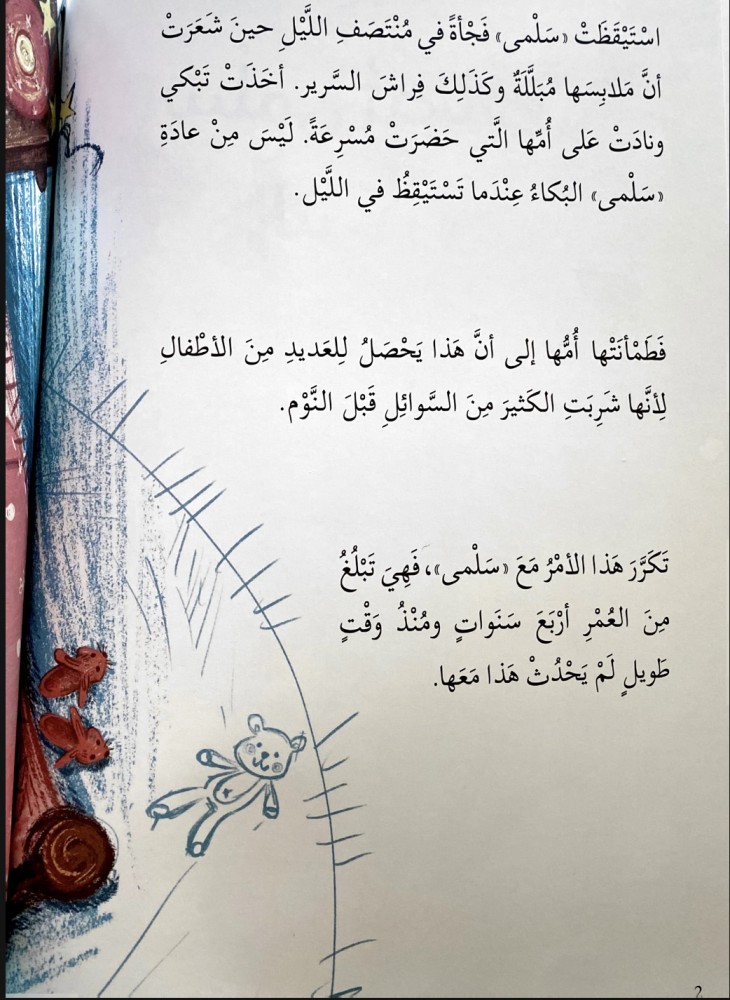 اسْتَيْقَظَتْ «سَلْمى» فَجْأةً في مُنْتَصَفِ اللَّيْلِ حينَ شَعَرَتْ
أنَّ مَلابِسَها مُبَلَّلَةٌ وكَذَلِكَ فِراشَ السَّرير. أخَذَتْ تَبْكي
ونادَتْ عَلى أُمِّها الَّتي حَضَرَتْ مُسْرِعَةً. لَيْسَ مِنْ عادَةِ
«سَلْمى» البُكاءُ عِنْدَما تَسْتَيْقِظُ في اللَّيْل.
فَطَمْأنَتْها أُمُّها إلى أنَّ هَذا يَحْصَلُ لِلعَديدِ مِنَ الأطْفالِ
لِأنَّها شَرِبَتِ الكَثيرَ مِنَ السَّوائِلِ قَبْلَ النَّوْم.
تَكَرَّرَ هَذا الأمْرُ مَعَ «سَلْمى»، فَهِيَ تَبْلُغُ
مِنَ العُمْرِ أرْبَعَ سَنَواتٍ ومُنْذُ وَقْتٍ
طَويلٍ لَمْ يَحْدُثْ هَذا مَعَها.